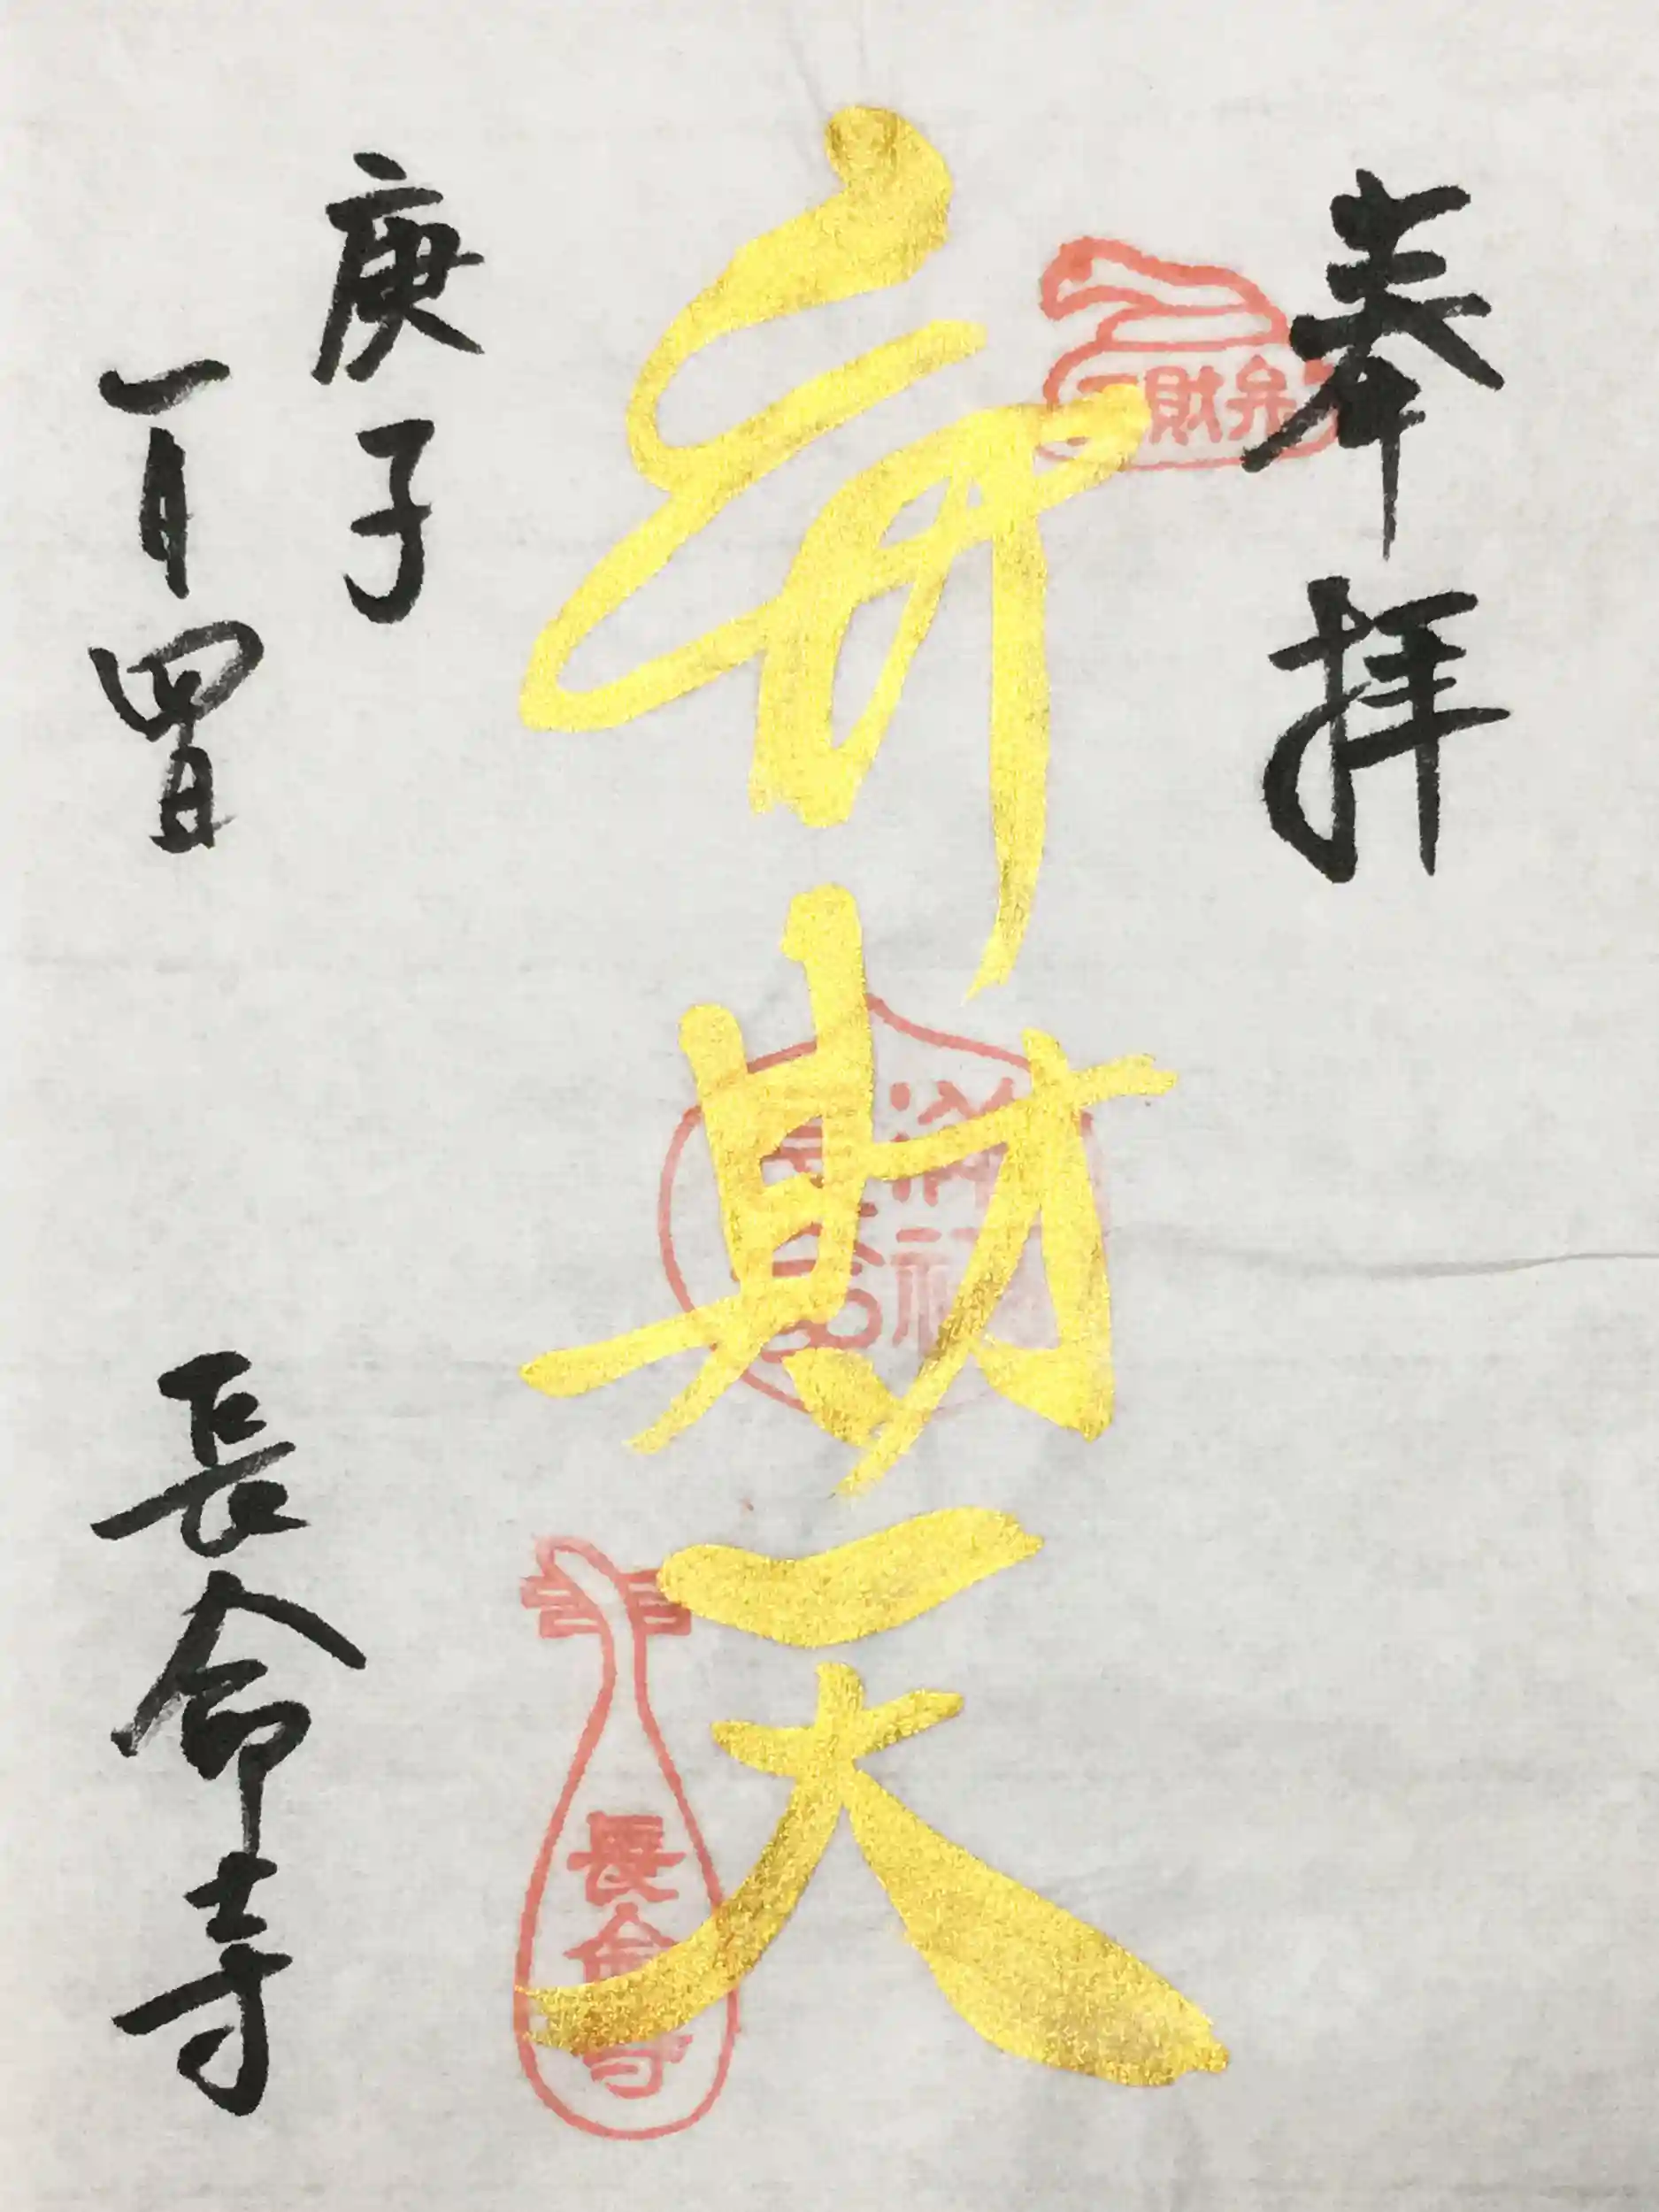 奉拝
弁財天
庚子
一月四日
長命寺
弁財
長命寺